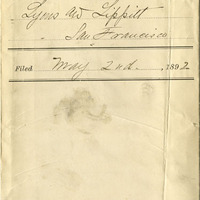 Lyons and Lippitt
San Francisco
Filed May 2nd. , 1892